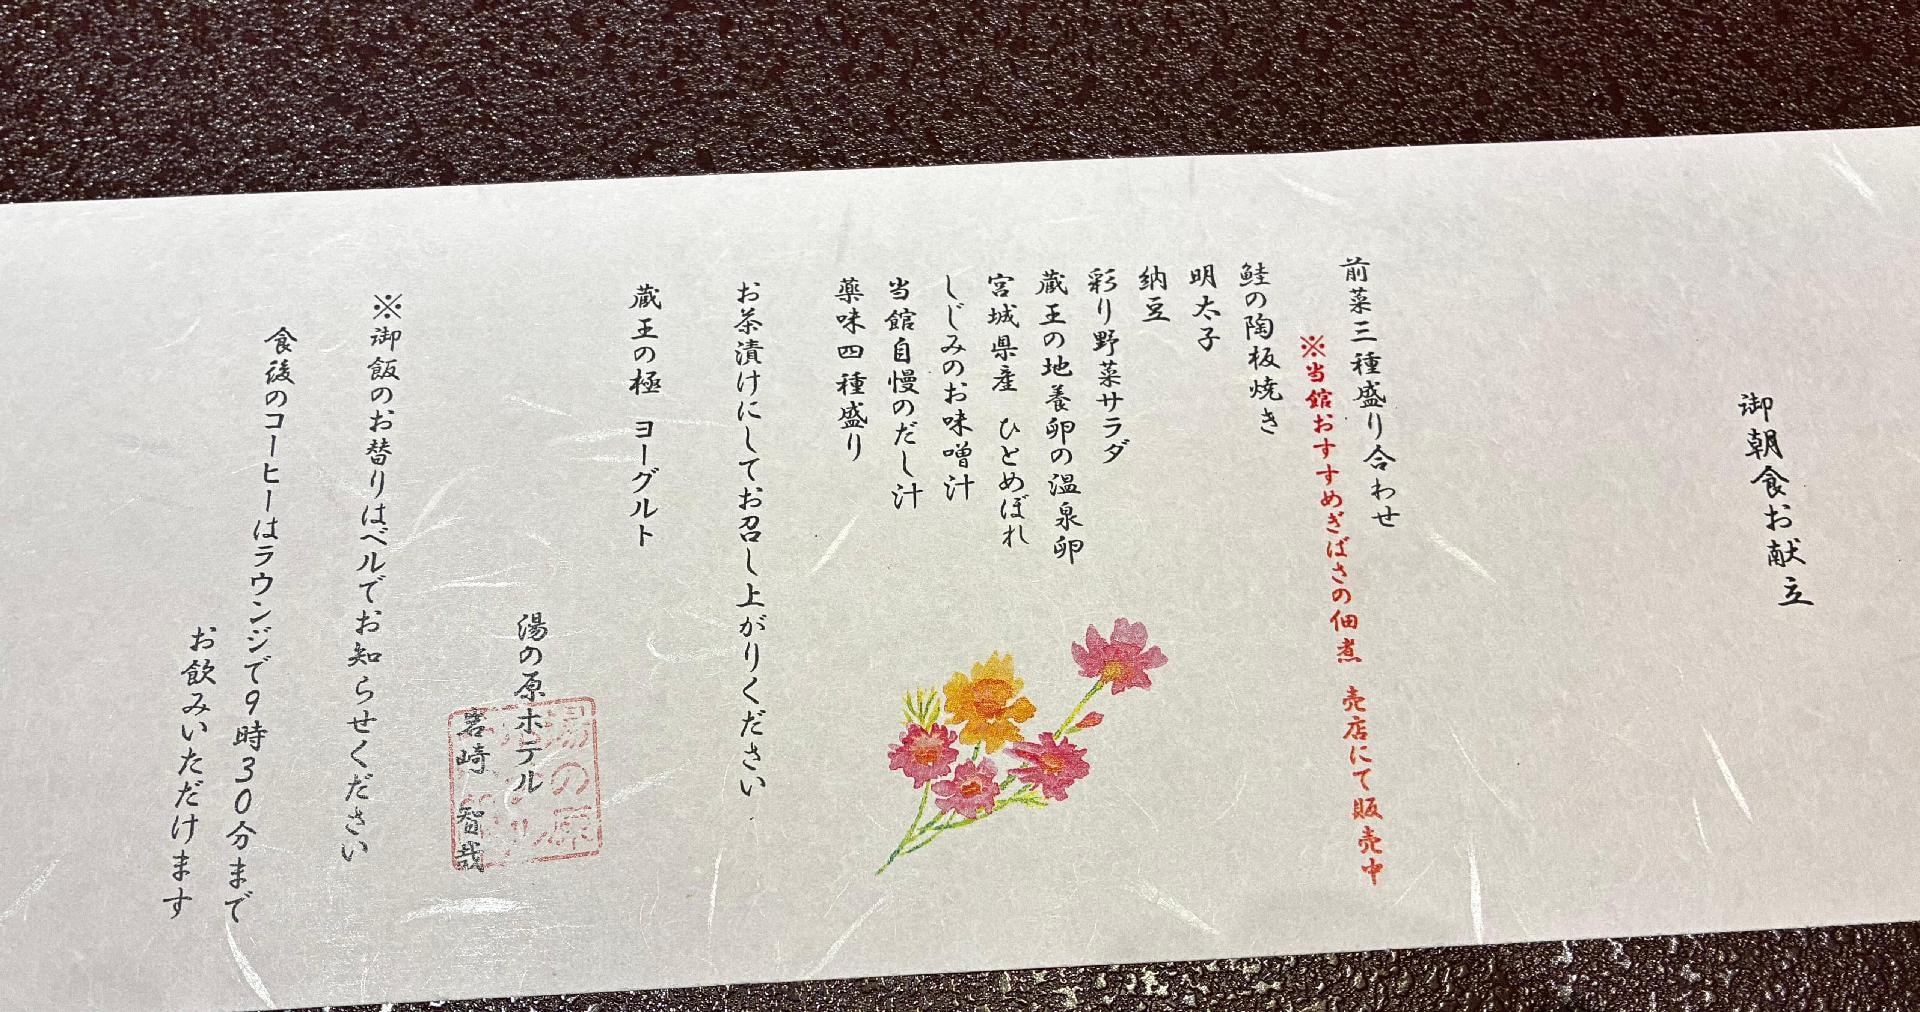 御朝食お献立
前菜三種盛り合わせ
※当館おすすめぎばさの佃煮 売店にて販売中
鮭の陶板焼き
明太子
納豆
彩り野菜サラダ
蔵王の地養卵の温泉卵
宮城県産 ひとめぼれ
しじみのお味噌汁
当館自慢のだし汁
薬味四種盛り
お茶漬けにしてお召し上がりください
蔵王の極 ヨーグルト
湯の原ホテル
岩崎 智哉
湯の原
※御飯のお替りはベルでお知らせください
食後のコーヒーはラウンジで9時30分まで
お飲みいただけます